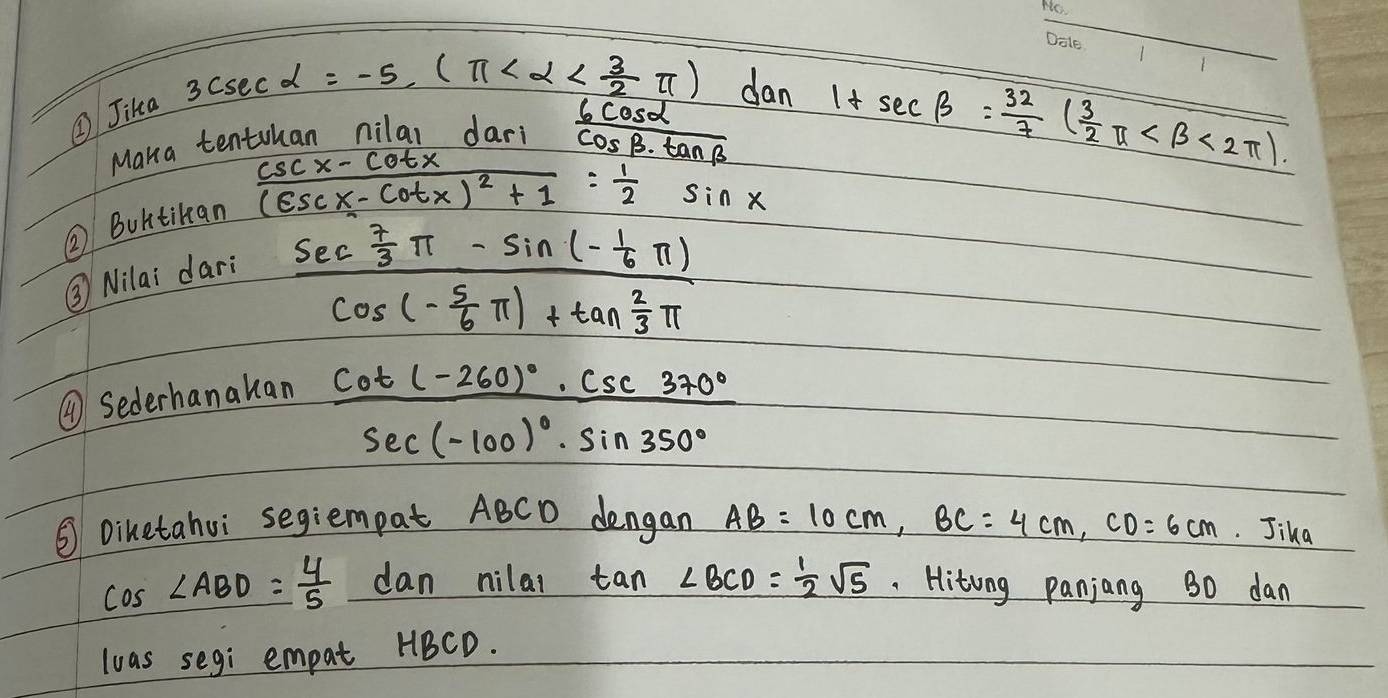 No.
Date
① Jika 3 csec α = -5, (π < α < 3/2 π) dan 1 + sec β = 32/7 (3/2 π < β < 2π).
Maka tentukan nilai dari 6 cos α / cos β . tan β
② Buktikan csc x - cot x / (csc x - cot x)² + 1 = 1/2 sin x
③ Nilai dari sec 7/3 π - sin (-1/6 π) / cos (-5/6 π) + tan 2/3 π
④ Sederhanakan cot (-260)° . csc 370° / sec (-100)° . sin 350°
⑤ Diketahui segiempat ABCD dengan AB = 10 cm, BC = 4 cm, CD = 6 cm. Jika
cos ∠ABD = 4/5 dan nilai tan ∠BCD = 1/2 √5. Hitung panjang BD dan
luas segi empat HBCD.